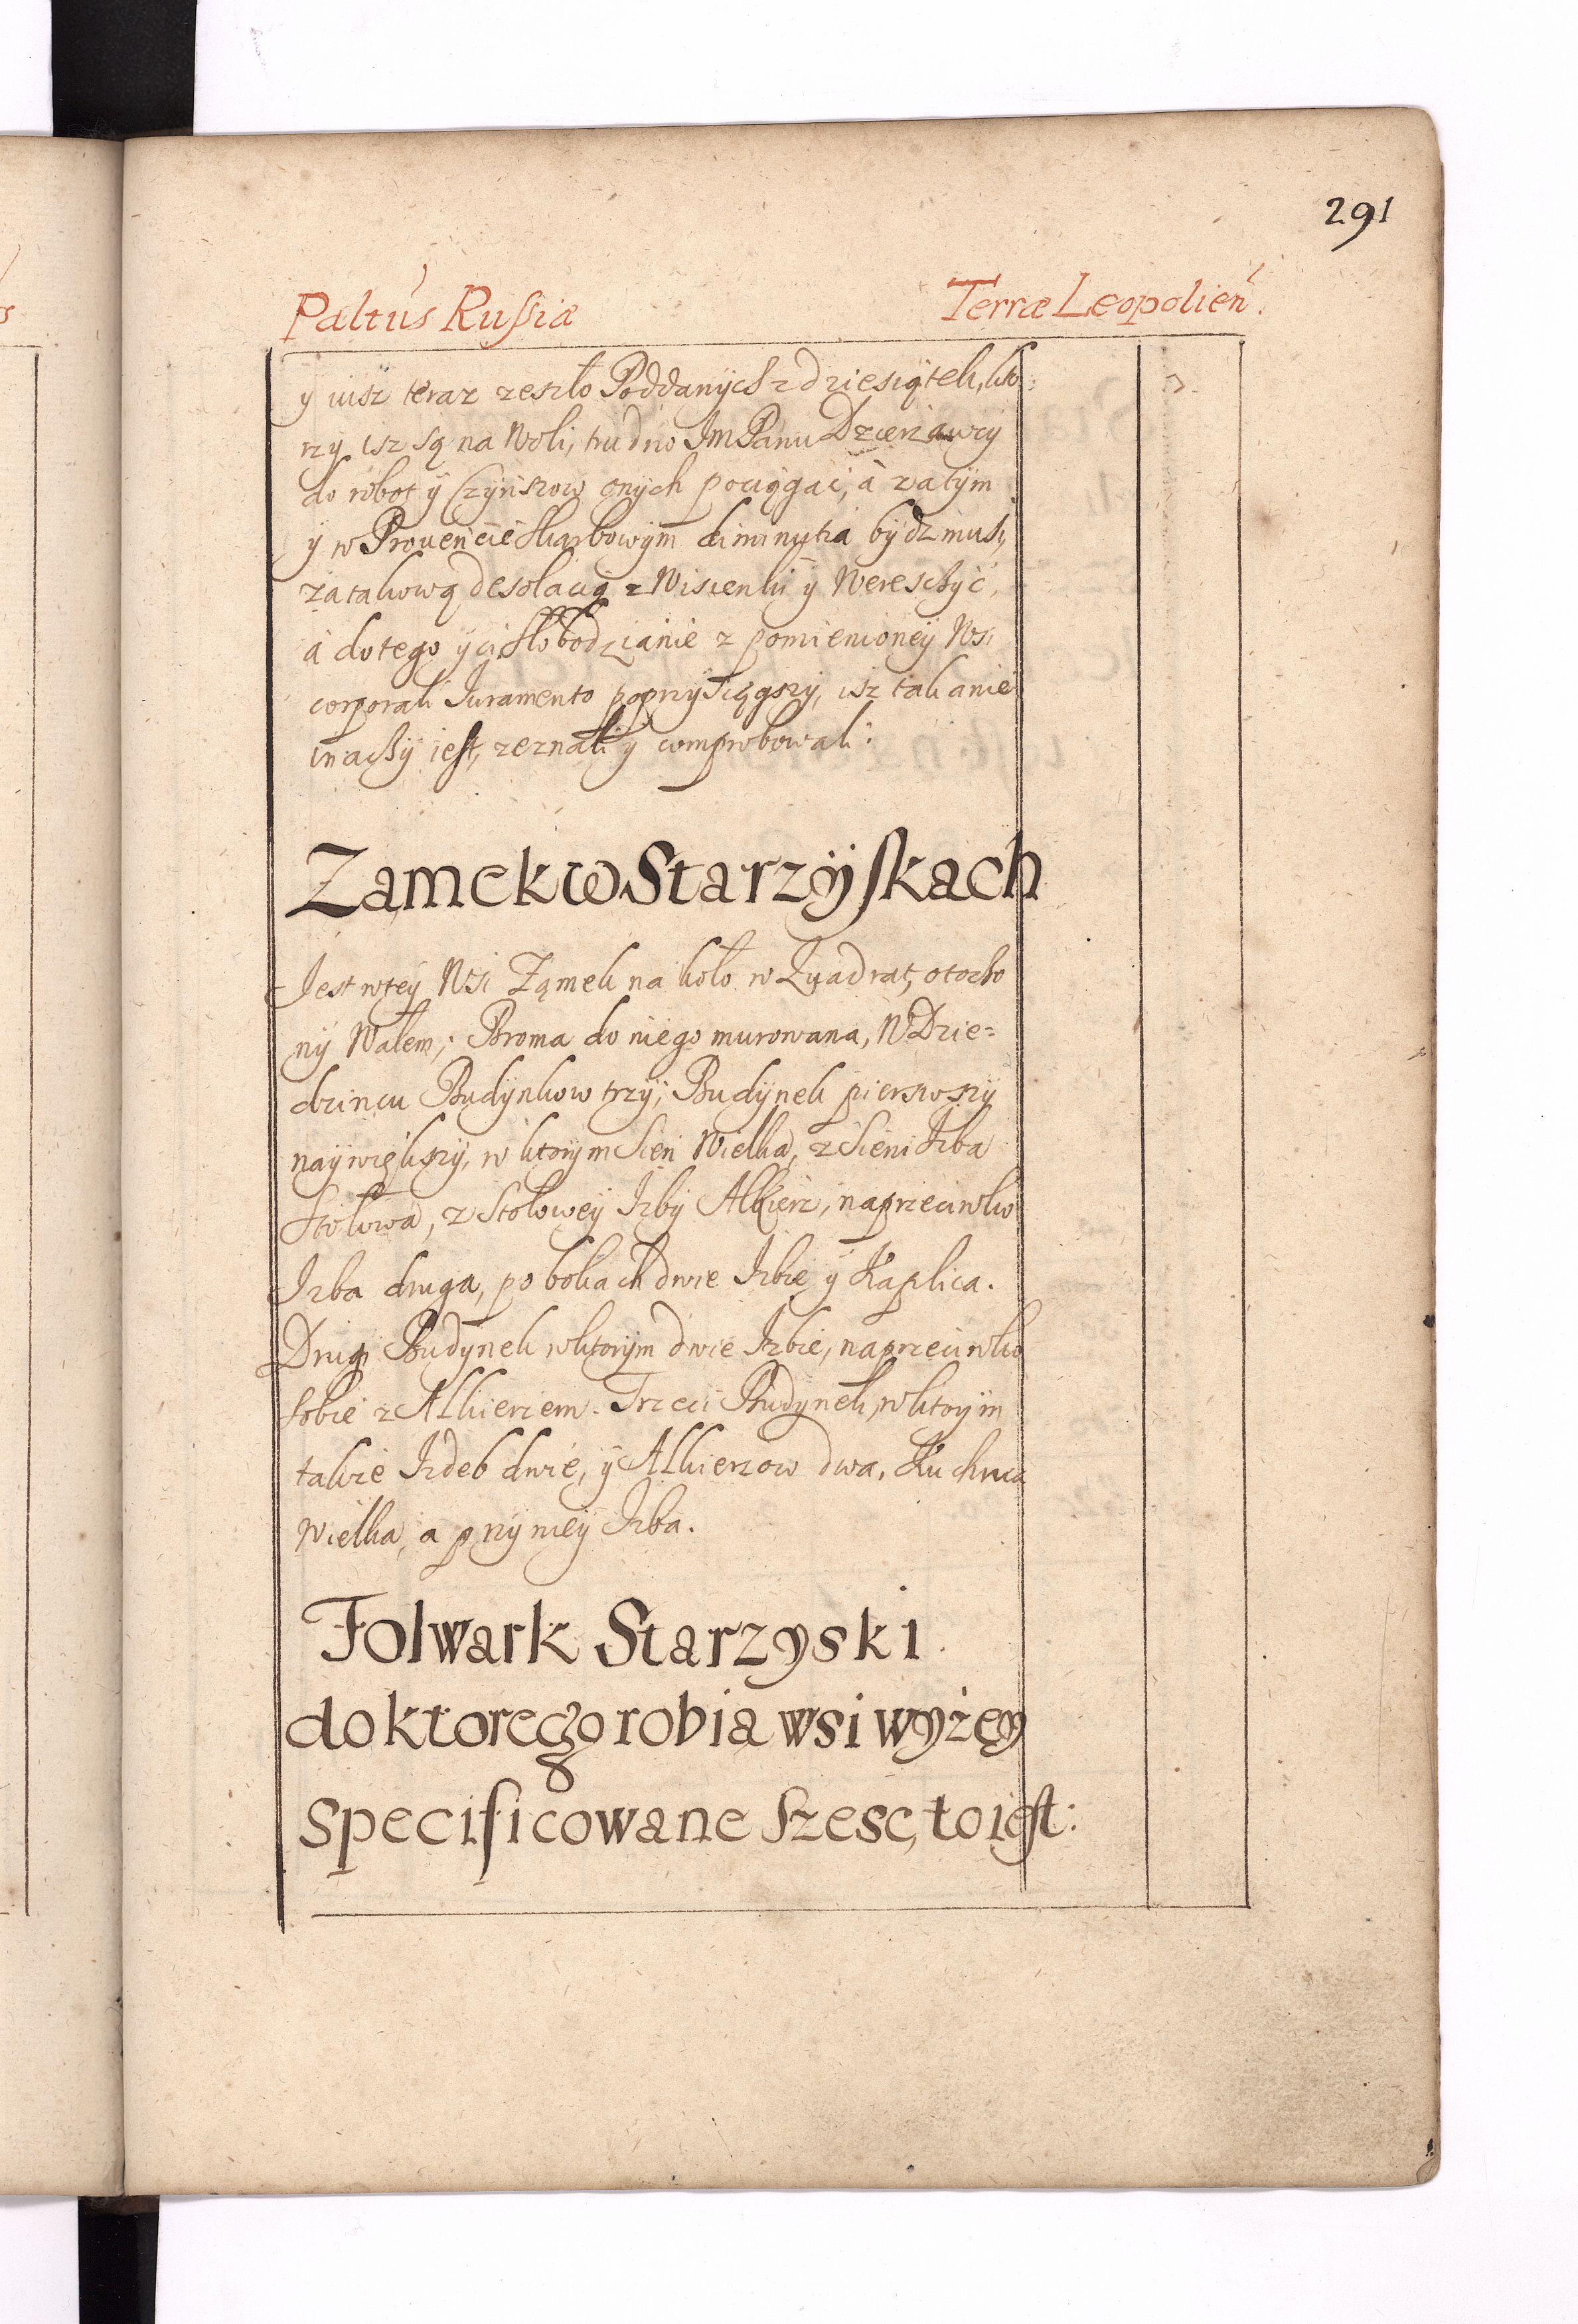 291
Paltus Russiæ Terræ Leopolien.
y iusz teraz zeszło Poddanych z dziesiątek, kto:
rzy isz są na Woli, trudno Jm Panu Dzierzawcy
do robot y Czynszow onych pociągać, à zatym
y w Prouencie Skarbowym diminutia bydz musi,
za takową desolacią z Wisienki y Wereszyc,
à do tego y ci Słobodzianie z pomienioney Wsi
corporali Juramento poprzysięgszy, isz tak a nie
inaczy iest, zeznali y comprobowali:
Zamek w Starzyskach
Jest w tey Wsi Zamek na koło w Quadrat, otoczo
ny Wałem; Broma do niego murowana, W Dzie=
dzincu Budynkow trzy; Budynek pierwszy
naywiększy, w ktorym Sień Wielka, z Sieni Izba
Stołowa, z Stołowey Izby Alkierz, naprzeciwko
Izba druga, po bokach dwie Izbie y Kaplica.
Drugi Budynek w ktorym dwie Izbie, naprzeciwko
sobie z Alkierzem. Trzeci Budynek, w ktorym
takze Izdeb dwie, y Alkierzow dwa, Kuchnia
Wielka, a przy niey Izba.
Folwark Starzyski
do ktorego robią wsi wyżey
specificowane szesc, to iest: